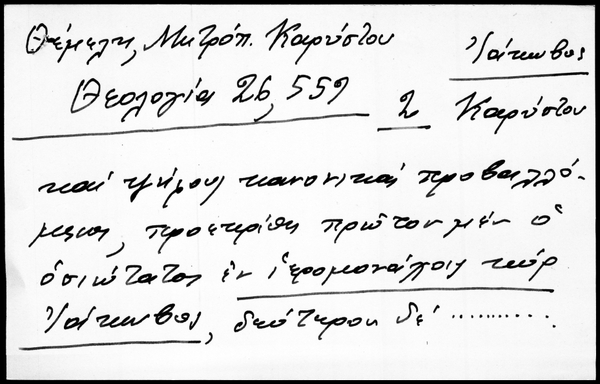 Θέμελη, Μητρόπ. Καρύστου
Ἰάκωβος
Θεολογία 26, 552
2 Καρύστου
καί ψήφους κανονικάς προβαλλό-
μενοι, προεκρίθη πρῶτον μέν ὁ
ὁσιώτατος ἐν ἱερομονάχοις κύρ
Ἰάκωβος, δεύτερον δέ ..........